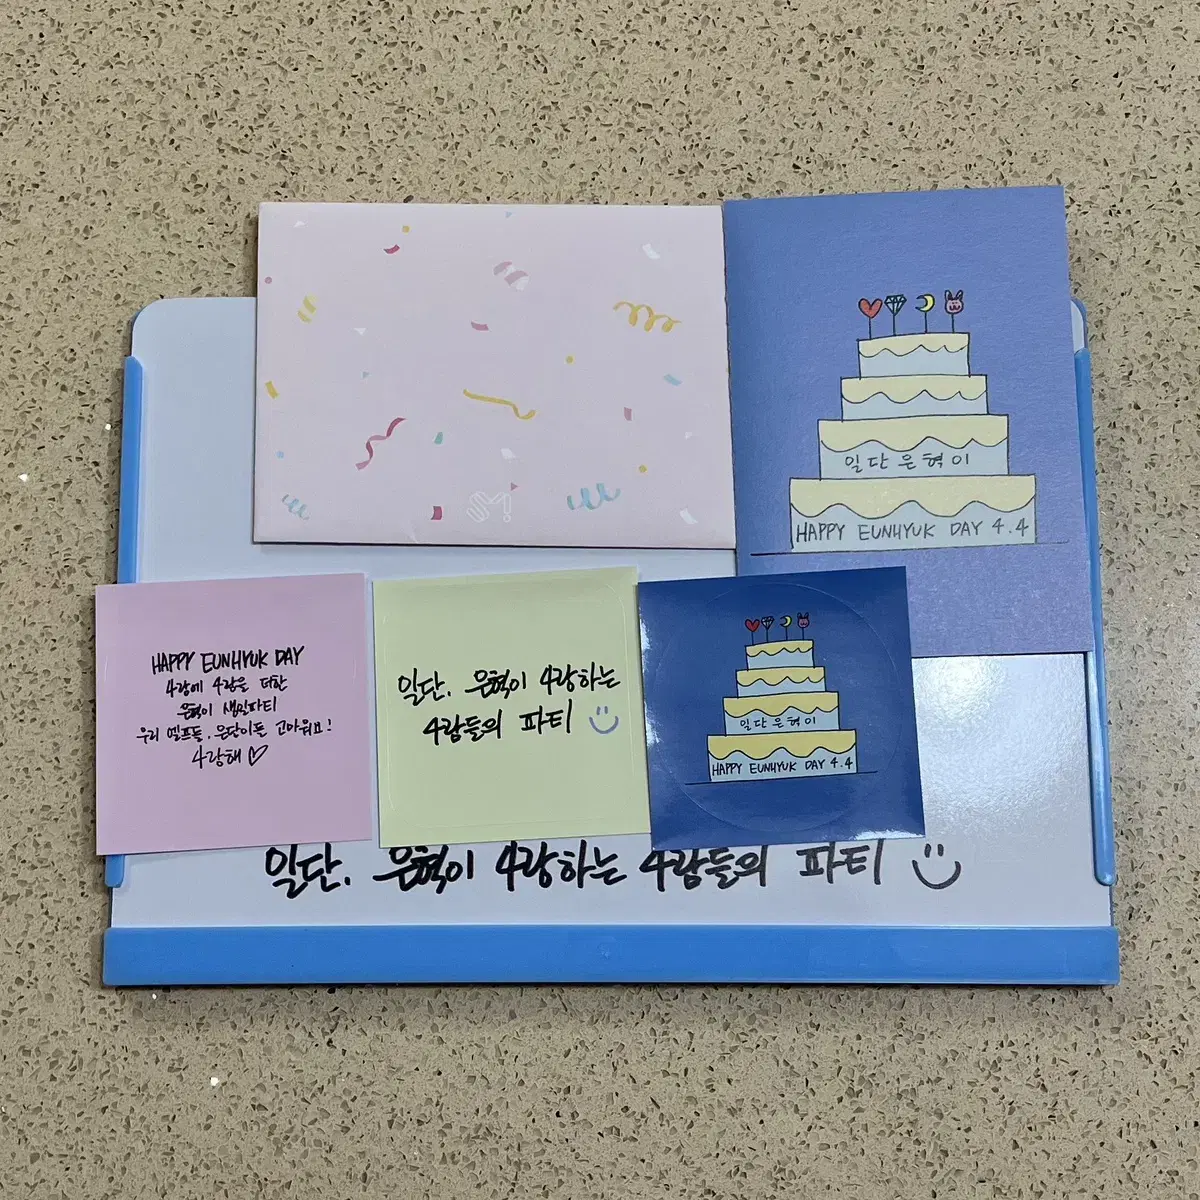 SM
일단은혁이
HAPPY EUNHYUK DAY 4.4
HAPPY EUNHYUK DAY
4랑에 4랑을 더한
은혁이 생일파티
우리 엘프들, 은단이들 고마워요!
4랑해♡
일단, 은혁이 4랑하는
4람들의 파티
일단은혁이
HAPPY EUNHYUK DAY 4.4
일단, 은혁이 4랑하는 4람들의 파티